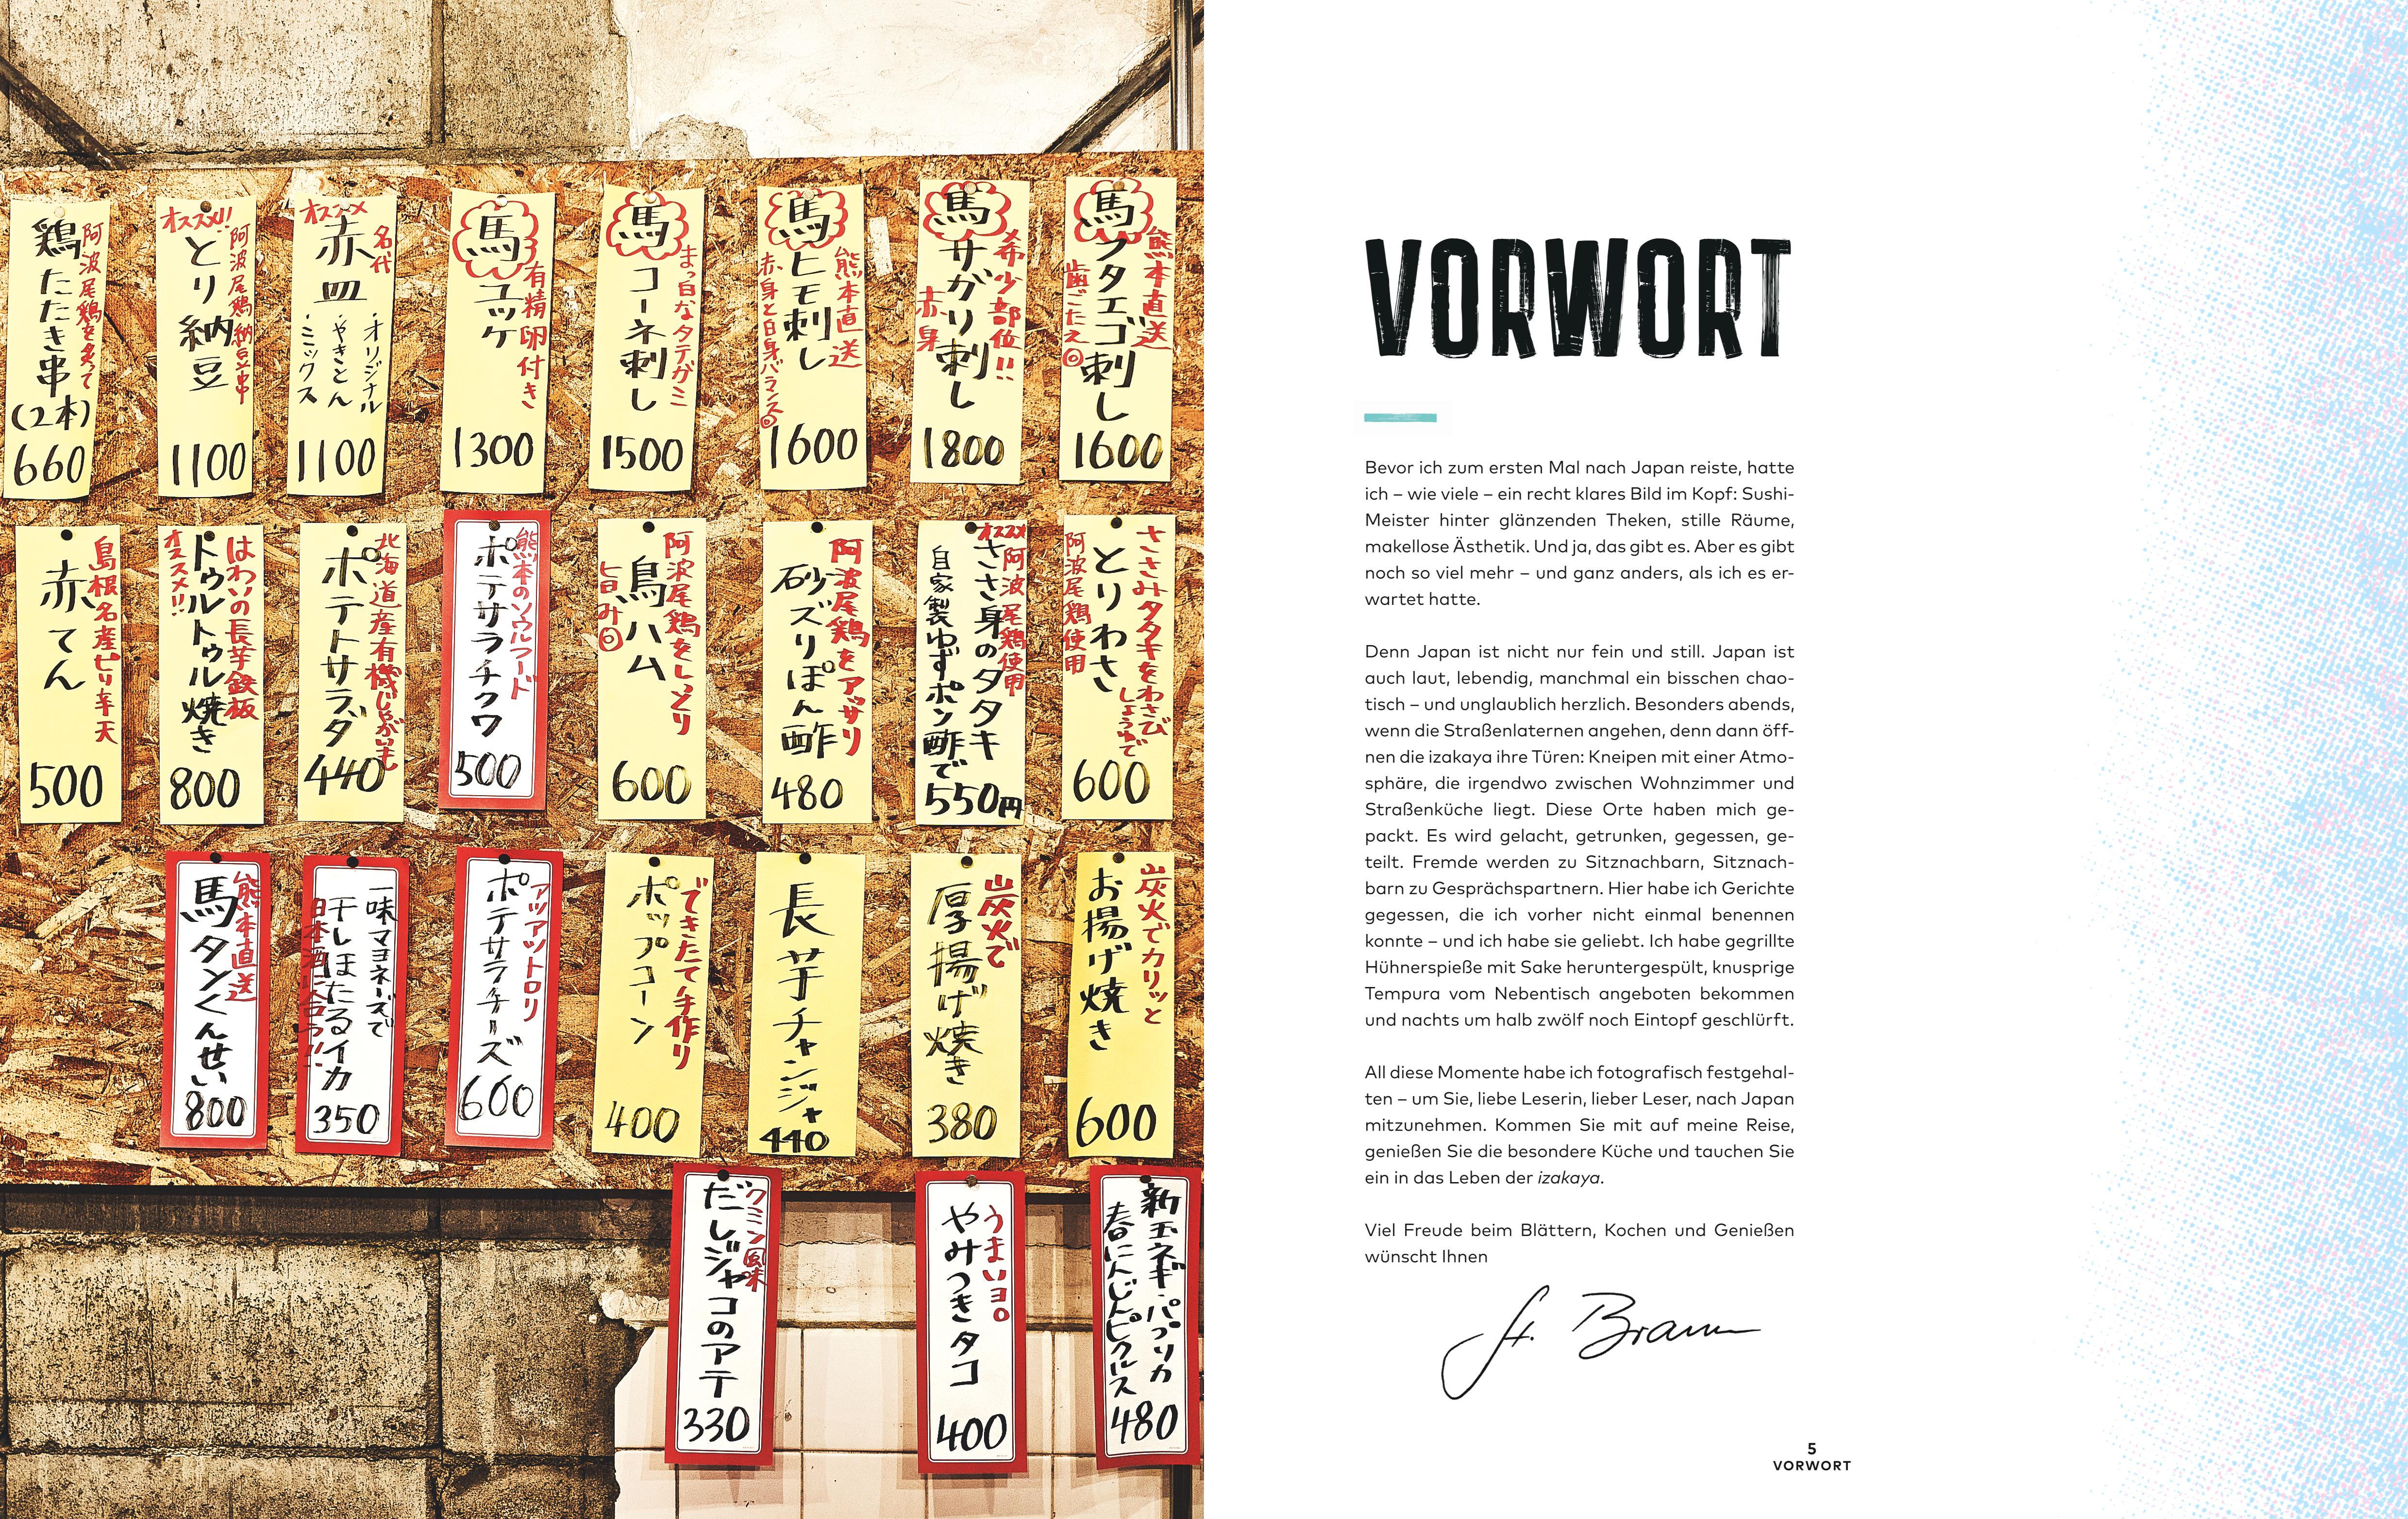 熊本直送
馬
フタエゴ刺し
歯ごたえ◎
1600
希少部位!!
馬
サガリ刺し
赤身
1800
熊本直送
馬
ヒモ刺し
赤身と白身バランス◎
1600
まっ白なタテガミ
馬
コーネ刺し
1500
有精卵付き
馬
ユッケ
1300
オススメ
名代
赤皿
・オリジナル
・やきとん
・ミックス
1100
オススメ!!
阿波尾鶏納豆串
とり納豆
1100
阿波尾鶏を炙って
鶏たたき串
(2本)
660
ささみタタキをわさび
しょうゆで
とりわさ
阿波尾鶏使用
600
オススメ
阿波尾鶏使用
ささ身のタタキ
自家製ゆずポン酢で
550円
阿波尾鶏をアッサリ
砂ズリぽん酢
480
阿波尾鶏をしっとり
鳥ハム
旨み◎
600
熊本のソウルフード
ポテサラチクワ
500
北海道産有機じゃがいも
ポテトサラダ
440
はわいの長芋鉄板
トゥルトゥル焼き
オススメ!!
800
島根名産ピリ辛天
赤てん
500
炭火でカリッと
お揚げ焼き
600
炭火で
厚揚げ焼き
380
長芋チャンジャ
440
できたて手作り
ポップコーン
400
アツアツトロリ
ポテサラチーズ
600
一味マヨネーズで
干しほたるイカ
日本酒に合う!!
350
熊本直送
馬タンくんせい
800
新玉ネギ・パプリカ
春にんじんピクルス
480
うまいヨロ
やみつきタコ
400
クミン風味
だしジャコのアテ
330
VORWORT
Bevor ich zum ersten Mal nach Japan reiste, hatte
ich – wie viele – ein recht klares Bild im Kopf: Sushi-
Meister hinter glänzenden Theken, stille Räume,
makellose Ästhetik. Und ja, das gibt es. Aber es gibt
noch so viel mehr – und ganz anders, als ich es er-
wartet hatte.
Denn Japan ist nicht nur fein und still. Japan ist
auch laut, lebendig, manchmal ein bisschen chao-
tisch – und unglaublich herzlich. Besonders abends,
wenn die Straßenlaternen angehen, denn dann öff-
nen die izakaya ihre Türen: Kneipen mit einer Atmo-
sphäre, die irgendwo zwischen Wohnzimmer und
Straßenküche liegt. Diese Orte haben mich ge-
packt. Es wird gelacht, getrunken, gegessen, ge-
teilt. Fremde werden zu Sitznachbarn, Sitznach-
barn zu Gesprächspartnern. Hier habe ich Gerichte
gegessen, die ich vorher nicht einmal benennen
konnte – und ich habe sie geliebt. Ich habe gegrillte
Hühnerspieße mit Sake heruntergespült, knusprige
Tempura vom Nebentisch angeboten bekommen
und nachts um halb zwölf noch Eintopf geschlürft.
All diese Momente habe ich fotografisch festgehal-
ten – um Sie, liebe Leserin, lieber Leser, nach Japan
mitzunehmen. Kommen Sie mit auf meine Reise,
genießen Sie die besondere Küche und tauchen Sie
ein in das Leben der izakaya.
Viel Freude beim Blättern, Kochen und Genießen
wünscht Ihnen
St. Braun
5
VORWORT